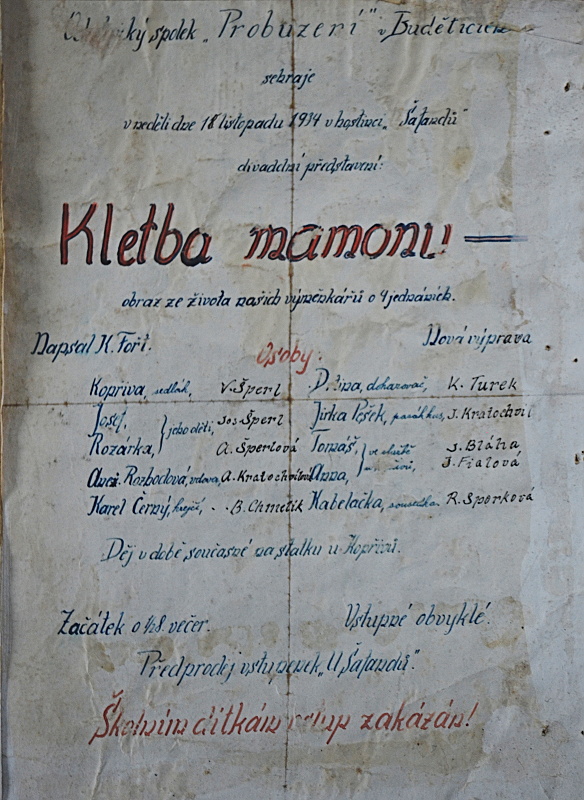 spolek „Probuzení" v Budětících
sehraje
v neděli dne 18 listopadu 1934 v hostinci „Šatandů"
divadelní představení:
Kletba mamonu
obraz ze života našich výměnkářů o 4 jednáních.
Napsal K. Fořt. Nová výprava
Osoby:
Kopřiva, sedlák, V. Šperl
Josef, Jos Šperl
Rozárka, } jeho děti, A. Šperlová
Rozhodová, vdova, A. Kratochvílová
Karel Černý, krejčí, B. Chmelík
dohazovač, K. Turek
Jirka Pešek, J. Kratochvil
Tomáš, J. Bláha
Anna, } ve službě J. Fialová
Kabelačka, sousedka. R. Šperková
Děj v době současné na statku u Kopřivů.
Začátek o ½8. večer. Vstupné obvyklé.
Předprodej vstupenek „U Šatandů".
Školním dítkám vstup zakázán!